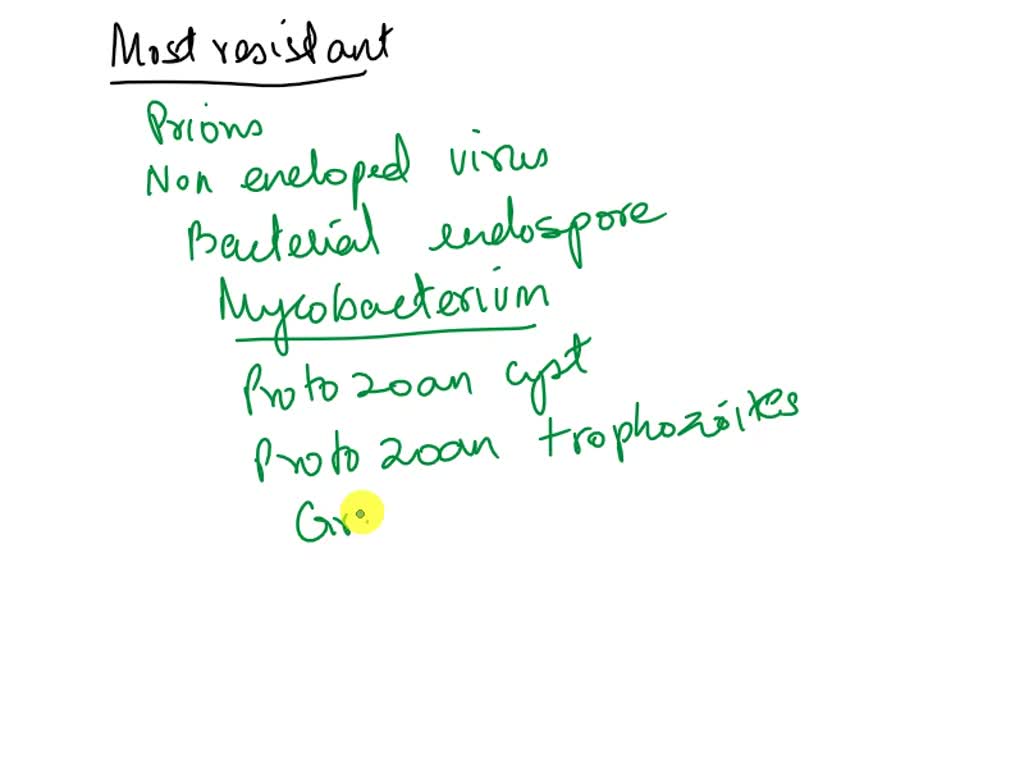 Most resistant
Prions
Non eneloped virus
Bacterial endospore
Mycobacterium
Protozoan cyst
Protozoan trophozoites
Gr